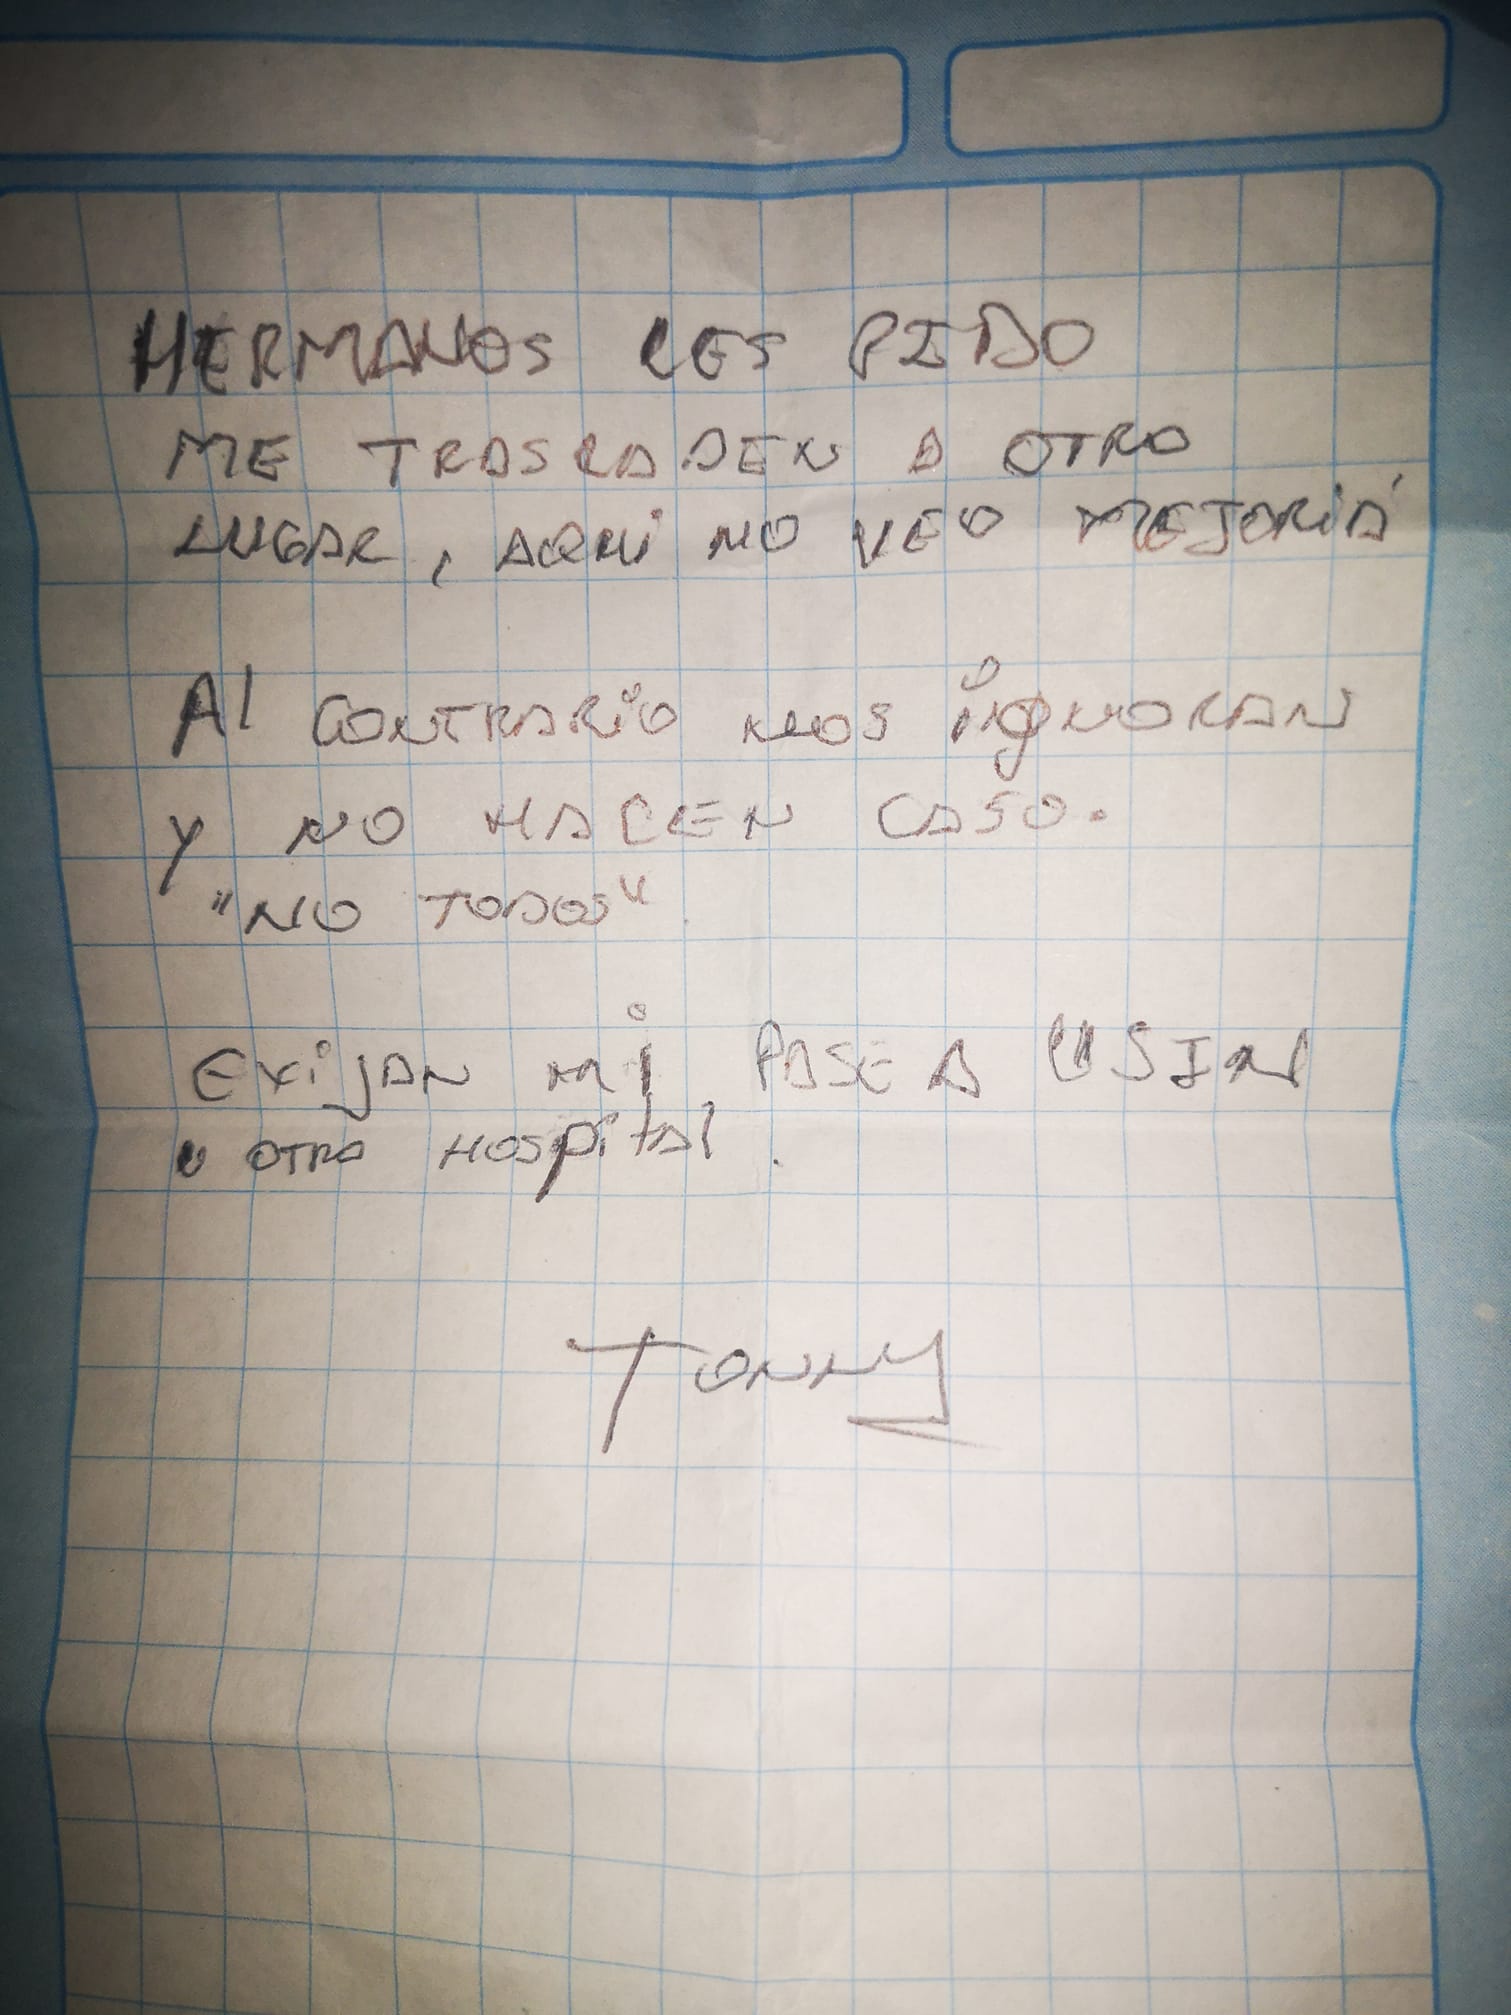 HERMANOS LES PIDO
ME TRASLADEN A OTRO
LUGAR, AQUI NO VEO MEJORIA
Al CONTRARIO NOS iGNORAN
Y NO HACEN CASO.
"NO TODOS"
EXijAN Mi PASE A
U OTRO HOSpitAl.
TONNY